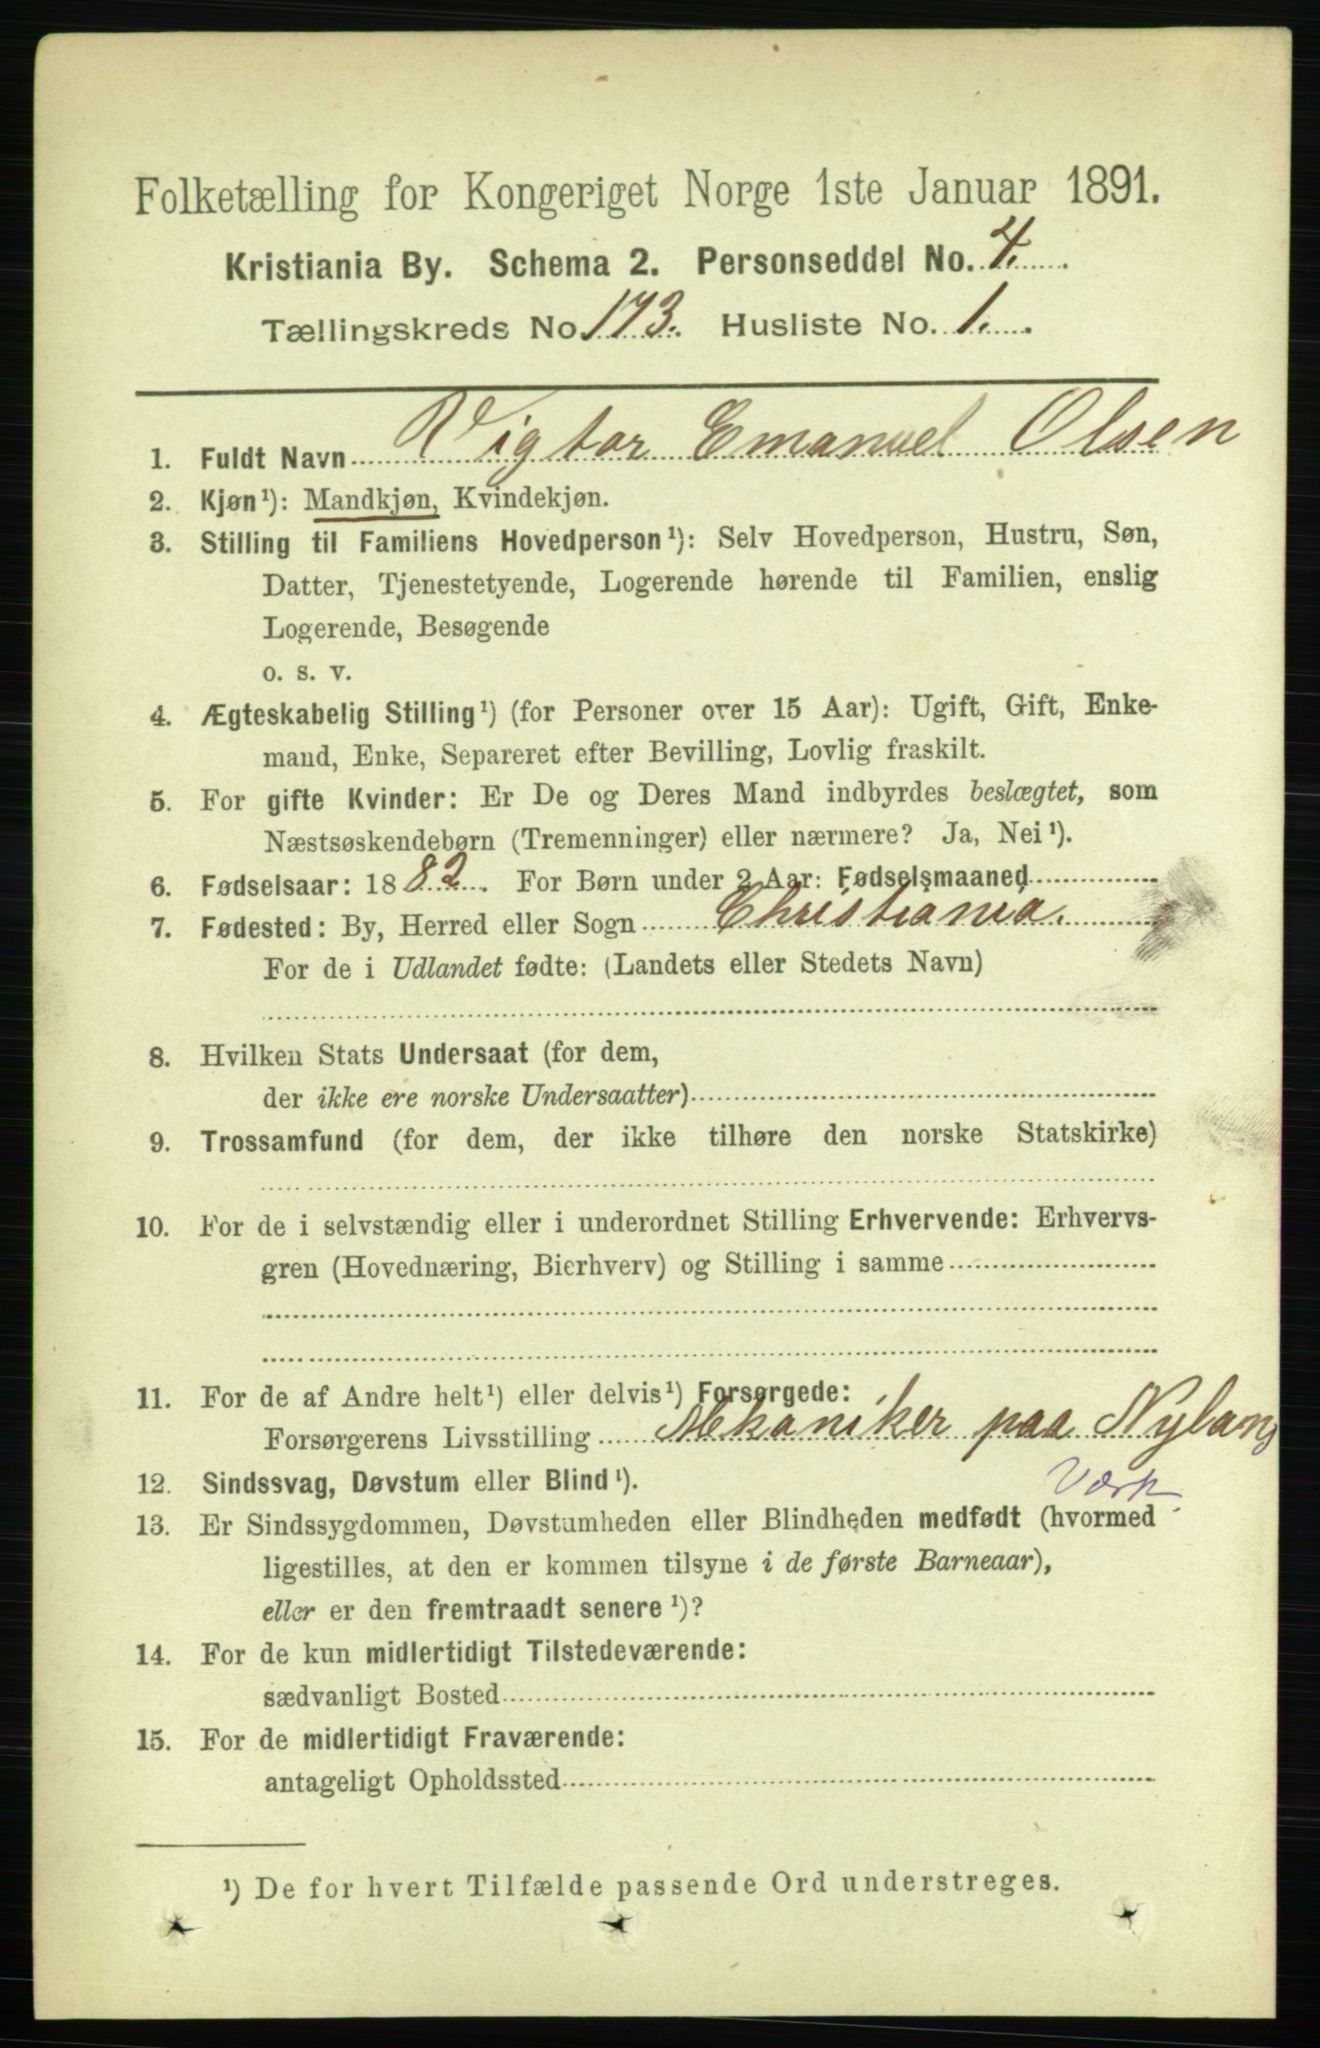 Folketælling for Kongeriget Norge 1ste Januar 1891.
Kristiania By. Schema 2. Personseddel No. 4.
Tællingskreds No 173. Husliste No. 1.
1. Fuldt Navn Vigtor Emanuel Olsen
2. Kjøn¹): Mandkjøn, Kvindekjøn.
3. Stilling til Familiens Hovedperson¹): Selv Hovedperson, Hustru, Søn,
Datter, Tjenestetyende, Logerende hørende til Familien, enslig
Logerende, Besøgende
o. s. v.
4. Ægteskabelig Stilling¹) (for Personer over 15 Aar): Ugift, Gift, Enke-
mand, Enke, Separeret efter Bevilling, Lovlig fraskilt.
5. For gifte Kvinder: Er De og Deres Mand indbyrdes beslægtet, som
Næstsøskendebørn (Tremenninger) eller nærmere? Ja, Nei¹).
6. Fødselsaar: 1882. For Børn under 2 Aar: Fødselsmaaned
7. Fødested: By, Herred eller Sogn Christiania.
For de i Udlandet fødte: (Landets eller Stedets Navn)
8. Hvilken Stats Undersaat (for dem,
der ikke ere norske Undersaatter)
9. Trossamfund (for dem, der ikke tilhøre den norske Statskirke)
10. For de i selvstændig eller i underordnet Stilling Erhvervende: Erhvervs-
gren (Hovednæring, Bierhverv) og Stilling i samme
11. For de af Andre helt¹) eller delvis¹) Forsørgede:
Forsørgerens Livsstilling Mekaniker paa Nylans
Værk.
12. Sindssvag, Døvstum eller Blind¹).
13. Er Sindssygdommen, Døvstumheden eller Blindheden medfødt (hvormed
ligestilles, at den er kommen tilsyne i de første Barneaar),
eller er den fremtraadt senere¹)?
14. For de kun midlertidigt Tilstedeværende:
sædvanligt Bosted
15. For de midlertidigt Fraværende:
antageligt Opholdssted
¹) De for hvert Tilfælde passende Ord understreges.